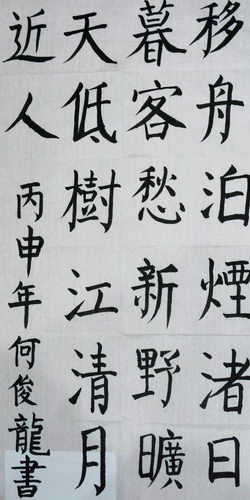 移舟泊煙渚日
暮客愁新野曠
天低樹江清月
近人
丙申年何俊龍書